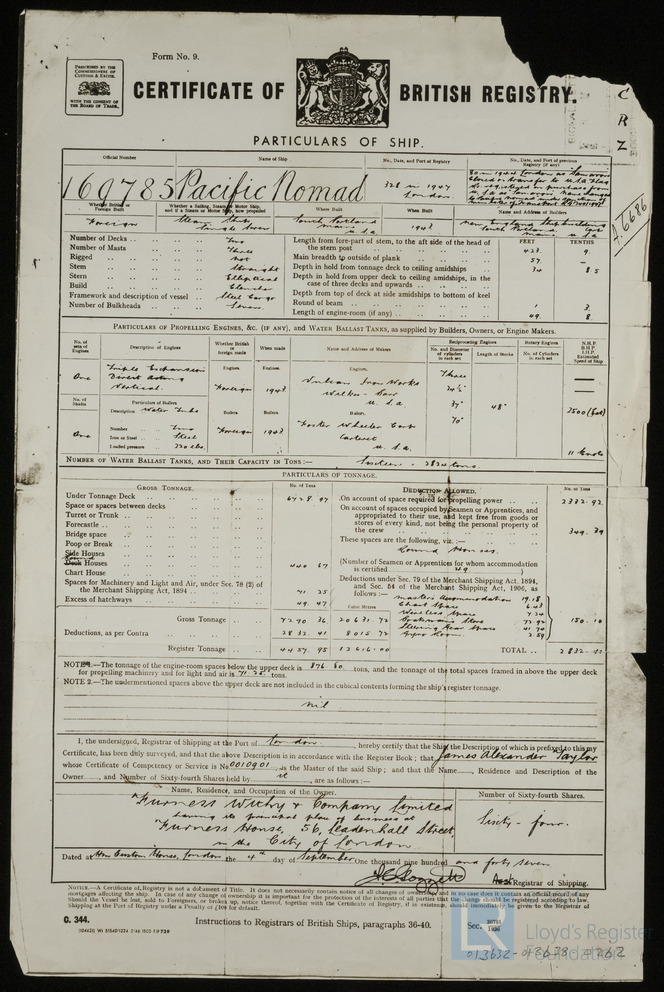 Form No. 9.
PRESCRIBED BY THE COMMISSIONERS OF CUSTOMS & EXCISE
WITH THE CONSENT OF THE BOARD OF TRADE.
CERTIFICATE OF BRITISH REGISTRY.
C
R
Z
PARTICULARS OF SHIP.
Official Number
Name of Ship
No., Date, and Port of Registry
No., Date, and Port of previous Registry (if any)
169785 Pacific Nomad
328 in 1947
London
A.6686
Whether British or Foreign Built
Whether a Sailing, Steam or Motor Ship, and if a Steam or Motor Ship, how propelled
Where Built
When Built
Name and Address of Builders
Foreign
Steam Ship
Single Screw
South Portland
Maine
U.S.A
1943
New England Ship Building Corp
South Portland
Maine U.S.A
Number of Decks Two
Number of Masts Three
Rigged Not
Stem Straight
Stern Elliptical
Build Clencher
Framework and description of vessel Steel Cargo
Number of Bulkheads Seven
FEET TENTHS
Length from fore-part of stem, to the aft side of the head of the stern post 423. 9.
Main breadth to outside of plank 57.
Depth in hold from tonnage deck to ceiling amidships 34 85
Depth in hold from upper deck to ceiling amidships, in the case of three decks and upwards
Depth from top of deck at side amidships to bottom of keel
Round of beam 1 3.
Length of engine-room (if any) 49. 8.
PARTICULARS OF PROPELLING ENGINES, &c. (IF ANY), AND WATER BALLAST TANKS, as supplied by Builders, Owners, or Engine Makers.
No. of sets of Engines
Description of Engines
Whether British or foreign made
When made
Name and Address of Makers
Reciprocating Engines
No. and Diameter of cylinders in each set
Length of Stroke
Rotary Engines
No. of Cylinders in each set
N.H.P.
B.H.P.
I.H.P.
Estimated Speed of Ship
One
Triple Expansion
Direct Acting
Vertical.
Engines.
Foreign
Engines.
1943
Engines.
Vulcan Iron Works
Wilkes-Barr
U.S.A
Three
24½"
37"
70"
48"
2500 (Est)
11 Knots
No. of Shafts
One
Particulars of Boilers
Description Water Tube
Number Two
Iron or Steel Steel
Loaded pressure 220 lbs.
Boilers
Foreign
Boilers
1943
Boilers.
Foster Wheeler Corp
Carteret
U.S.A.
NUMBER OF WATER BALLAST TANKS, AND THEIR CAPACITY IN TONS:— 2820 tons.
PARTICULARS OF TONNAGE.
GROSS TONNAGE.
No. of Tons
Under Tonnage Deck 6728.97
Space or spaces between decks
Turret or Trunk
Forecastle
Bridge space
Poop or Break
Side Houses
Round
Deck Houses 440 67
Chart House
Spaces for Machinery and Light and Air, under Sec. 78 (2) of the Merchant Shipping Act, 1894 71 25
Excess of hatchways 49.47
CUBIC METRES
Gross Tonnage 7290 36 20631.72
Deductions, as per Contra 2832.41 8015 72
Register Tonnage 4457 95 12616.00
DEDUCTIONS ALLOWED.
No. of Tons
On account of space required for propelling power 2332.92
On account of spaces occupied by Seamen or Apprentices, and appropriated to their use, and kept free from goods or stores of every kind, not being the personal property of the crew 349.39
These spaces are the following, viz.:—
Round Houses.
(Number of Seamen or Apprentices for whom accommodation is certified 49)
Deductions under Sec. 79 of the Merchant Shipping Act, 1894, and Sec. 54 of the Merchant Shipping Act, 1906, as follows:—
Masters Accommodation 19.18
Chart Space 6.43
Wireless Space 7.24
Boatswains Store 72.92
Steering Gear Space 41.74
Gyro Room 2.59
150.10
TOTAL 2832.41
NOTE 1.—The tonnage of the engine-room spaces below the upper deck is 876.80 tons, and the tonnage of the total spaces framed in above the upper deck for propelling machinery and for light and air is 71.25 tons.
NOTE 2.—The undermentioned spaces above the upper deck are not included in the cubical contents forming the ship's register tonnage.
nil
I, the undersigned, Registrar of Shipping at the Port of London hereby certify that the Ship, the Description of which is prefixed to this my
Certificate, has been duly surveyed, and that the above Description is in accordance with the Register Book; that James Alexander Taylor
whose Certificate of Competency or Service is No. 0010901, is the Master of the said Ship; and that the Name, Residence and Description of the
Owner, and Number of Sixty-fourth Shares held by it are as follows:—
Name, Residence, and Occupation of the Owner.
Number of Sixty-fourth Shares.
Furness Withy & Company Limited
having its principal place of business at
Furness House, 56, Leadenhall Street
in the City of London
Sixty-four.
Dated at Hm Custom House, London the 4th day of September One thousand nine hundred and forty seven
Asst Registrar of Shipping.
NOTICE.—A Certificate of Registry is not a document of Title. It does not necessarily contain notice of all changes of ownership, and in no case does it contain an official record of any
mortgages affecting the ship. In case of any change of ownership it is important for the protection of the interests of all parties that the change should be registered according to law.
Should the Vessel be lost, sold to Foreigners, or broken up, notice thereof, together with the Certificate of Registry, if in existence, should immediately be given to the Registrar of
Shipping at the Port of Registry under a Penalty of £100 for default.
C. 344.
Instructions to Registrars of British Ships, paragraphs 36-40.
Lloyd's Register
Foundation